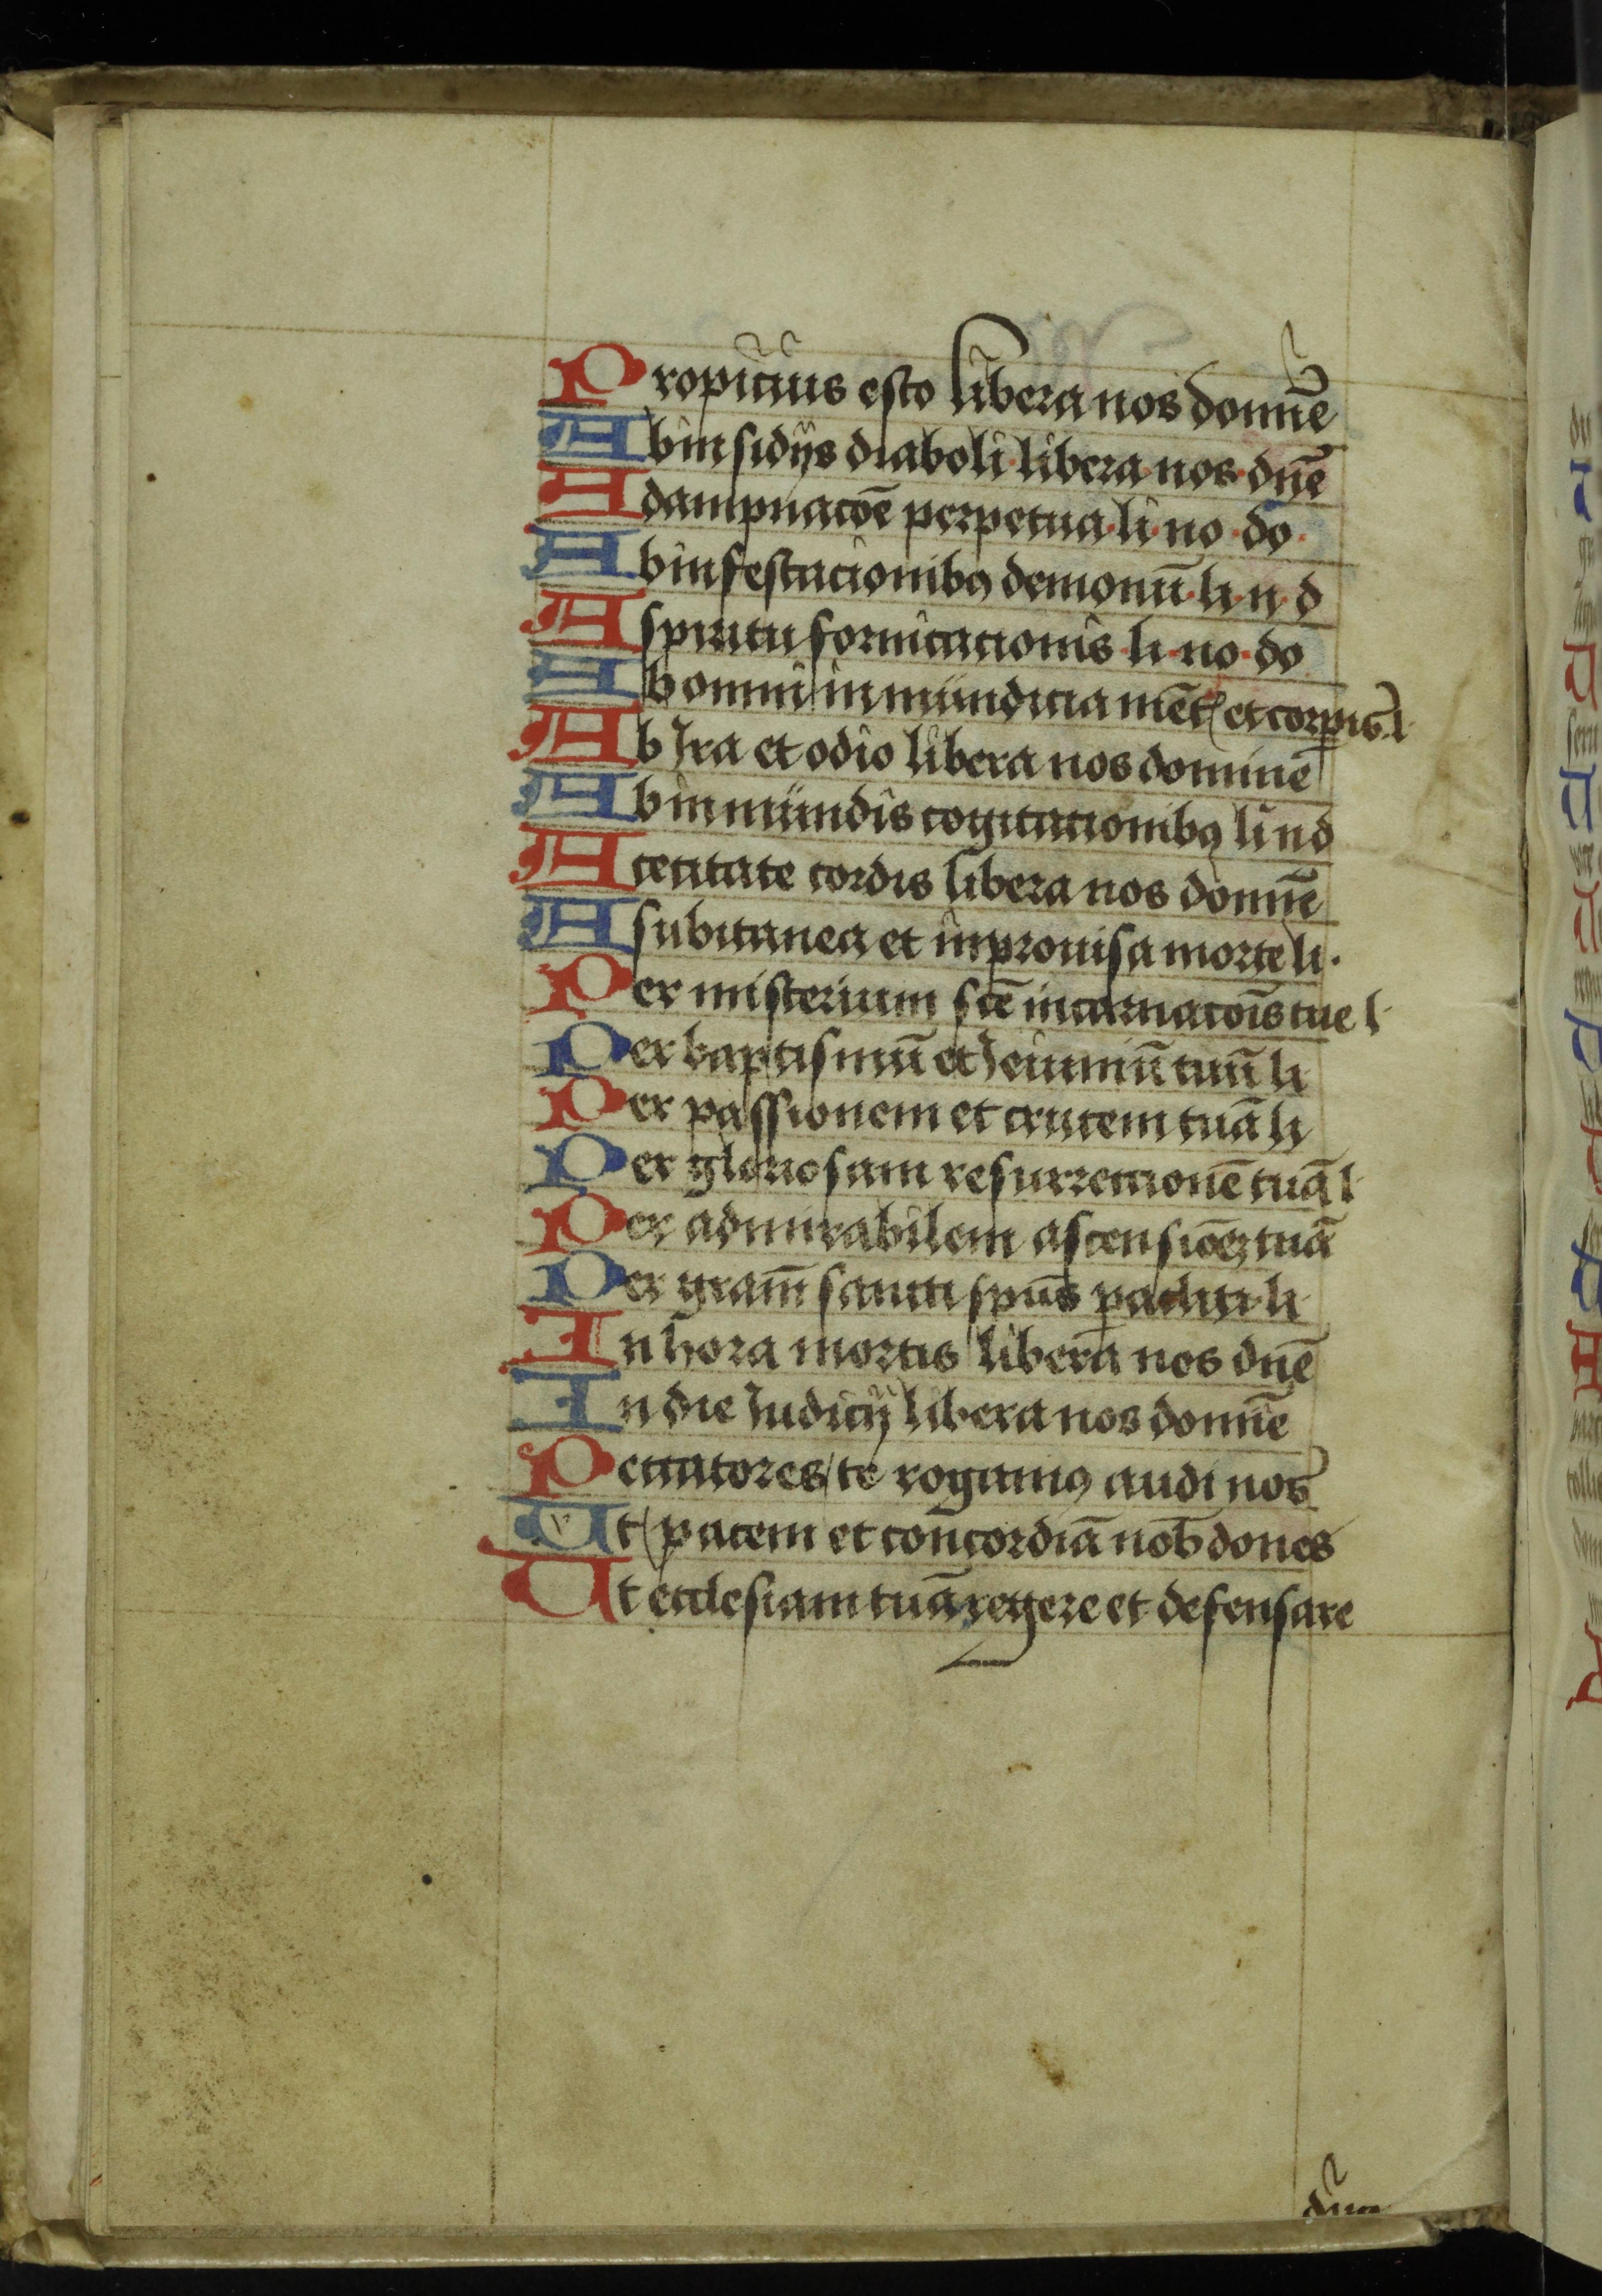 Propicius esto libera nos domīe
Ab insidijs diaboli·libera·nos·dn̄e
A dampnacōe perpetua·li·no·do·
Ab infestacionibꝯ demonū·li·n·d
A spiritu fornicacionis·li·no·do
Ab omni inmundicia mēt(is) et corp(or)is·l·
Ab Ira et odio libera nos dominē
Ab inmundis cogitacionibꝯ li n d
A cecitate cordis libera nos domīe
A subitanea et inprouisa morte li·
Per misterium sc̄e incarnacōis tue l·
Per baptismū et Jeiuniū tuū li
Per passionem et crucem tuā li
Per gloriosam resurrectionē tuā l·
Per admirabilem ascensiōeꝫ tuā
Per gram̄ sancti spūs pacliti·li·
In hora mortis libera nos dn̄e
In die Iudicij libera nos domīe
Peccatores te rogamꝯ audi nos
Ut pacem et concordiā nob̄ dones
Ut ecclesiam tuā regere et defensare